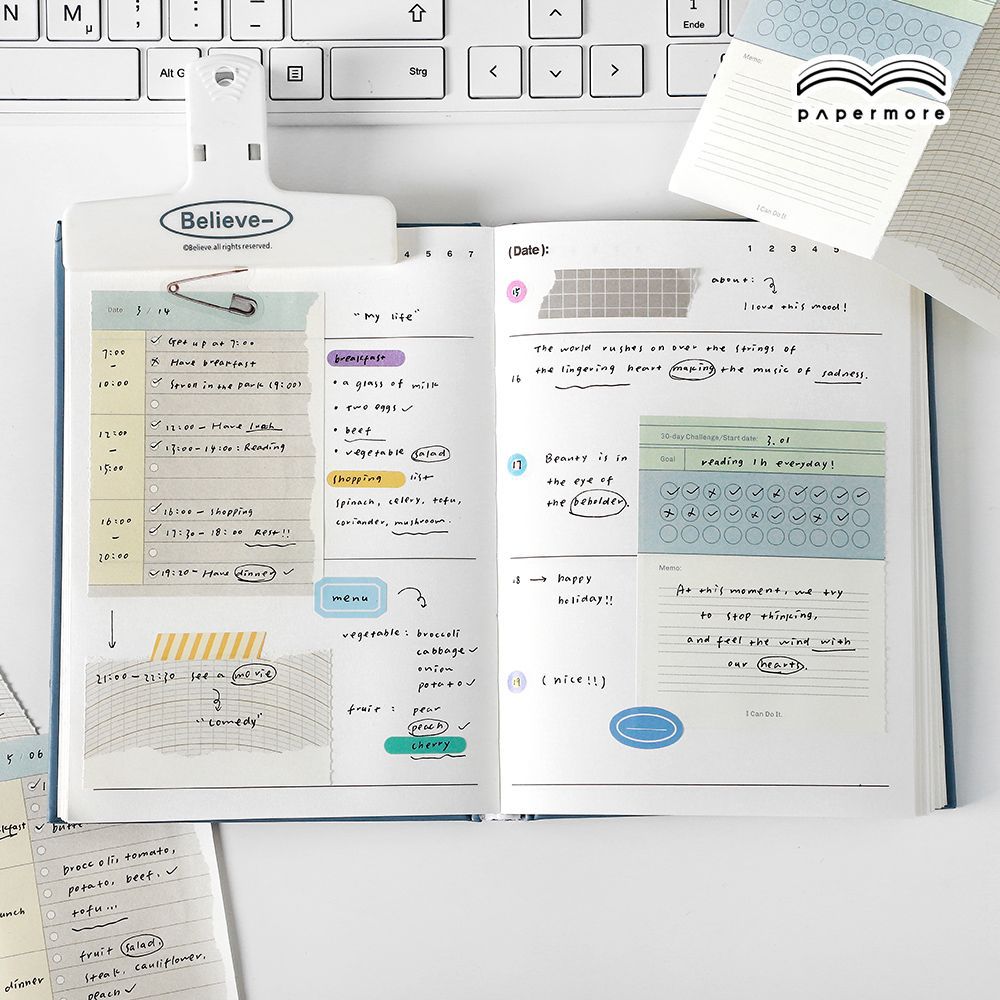 N
M
µ
;
,
:
.
1
Ende
Alt G
Strg
Memo:
I Can Do It.
papermore
Believe–
©Believe.all rights reserved.
4 5 6 7
Date 3 / 14
7:00
–
10:00
12:00
–
15:00
16:00
–
20:00
Get up at 7:00
Have breakfast
Stroll in the park (9:00)
12:00 – Have lunch
13:00 – 14:00: Reading
16:00 – shopping
17:30 – 18:00 Rest!!
19:20 – Have dinner
21:00 – 22:30 see a movie
"comedy"
"My life"
breakfast
• a glass of milk
• two eggs
• beef
• vegetable salad
shopping list
spinach, celery, tofu,
coriander, mushroom.
menu
vegetable: broccoli
cabbage
onion
potato
fruit: pear
peach
cherry
(Date):
1 2 3 4 5
15
about:
I love this mood!
The world rushes on over the strings of
16
the lingering heart making the music of sadness.
17
Beauty is in
the eye of
the beholder.
18 → happy
holiday!!
19
(nice!!)
30-day Challenge/Start date: 3.01
Goal reading 1h everyday!
Memo:
At this moment, we try
to stop thinking,
and feel the wind with
our hearts.
I Can Do It.
5 / 06
kfast
broccoli, tomato,
potato, beef.
tofu...
unch
fruit salad.
dinner
steak, cauliflower,
peach